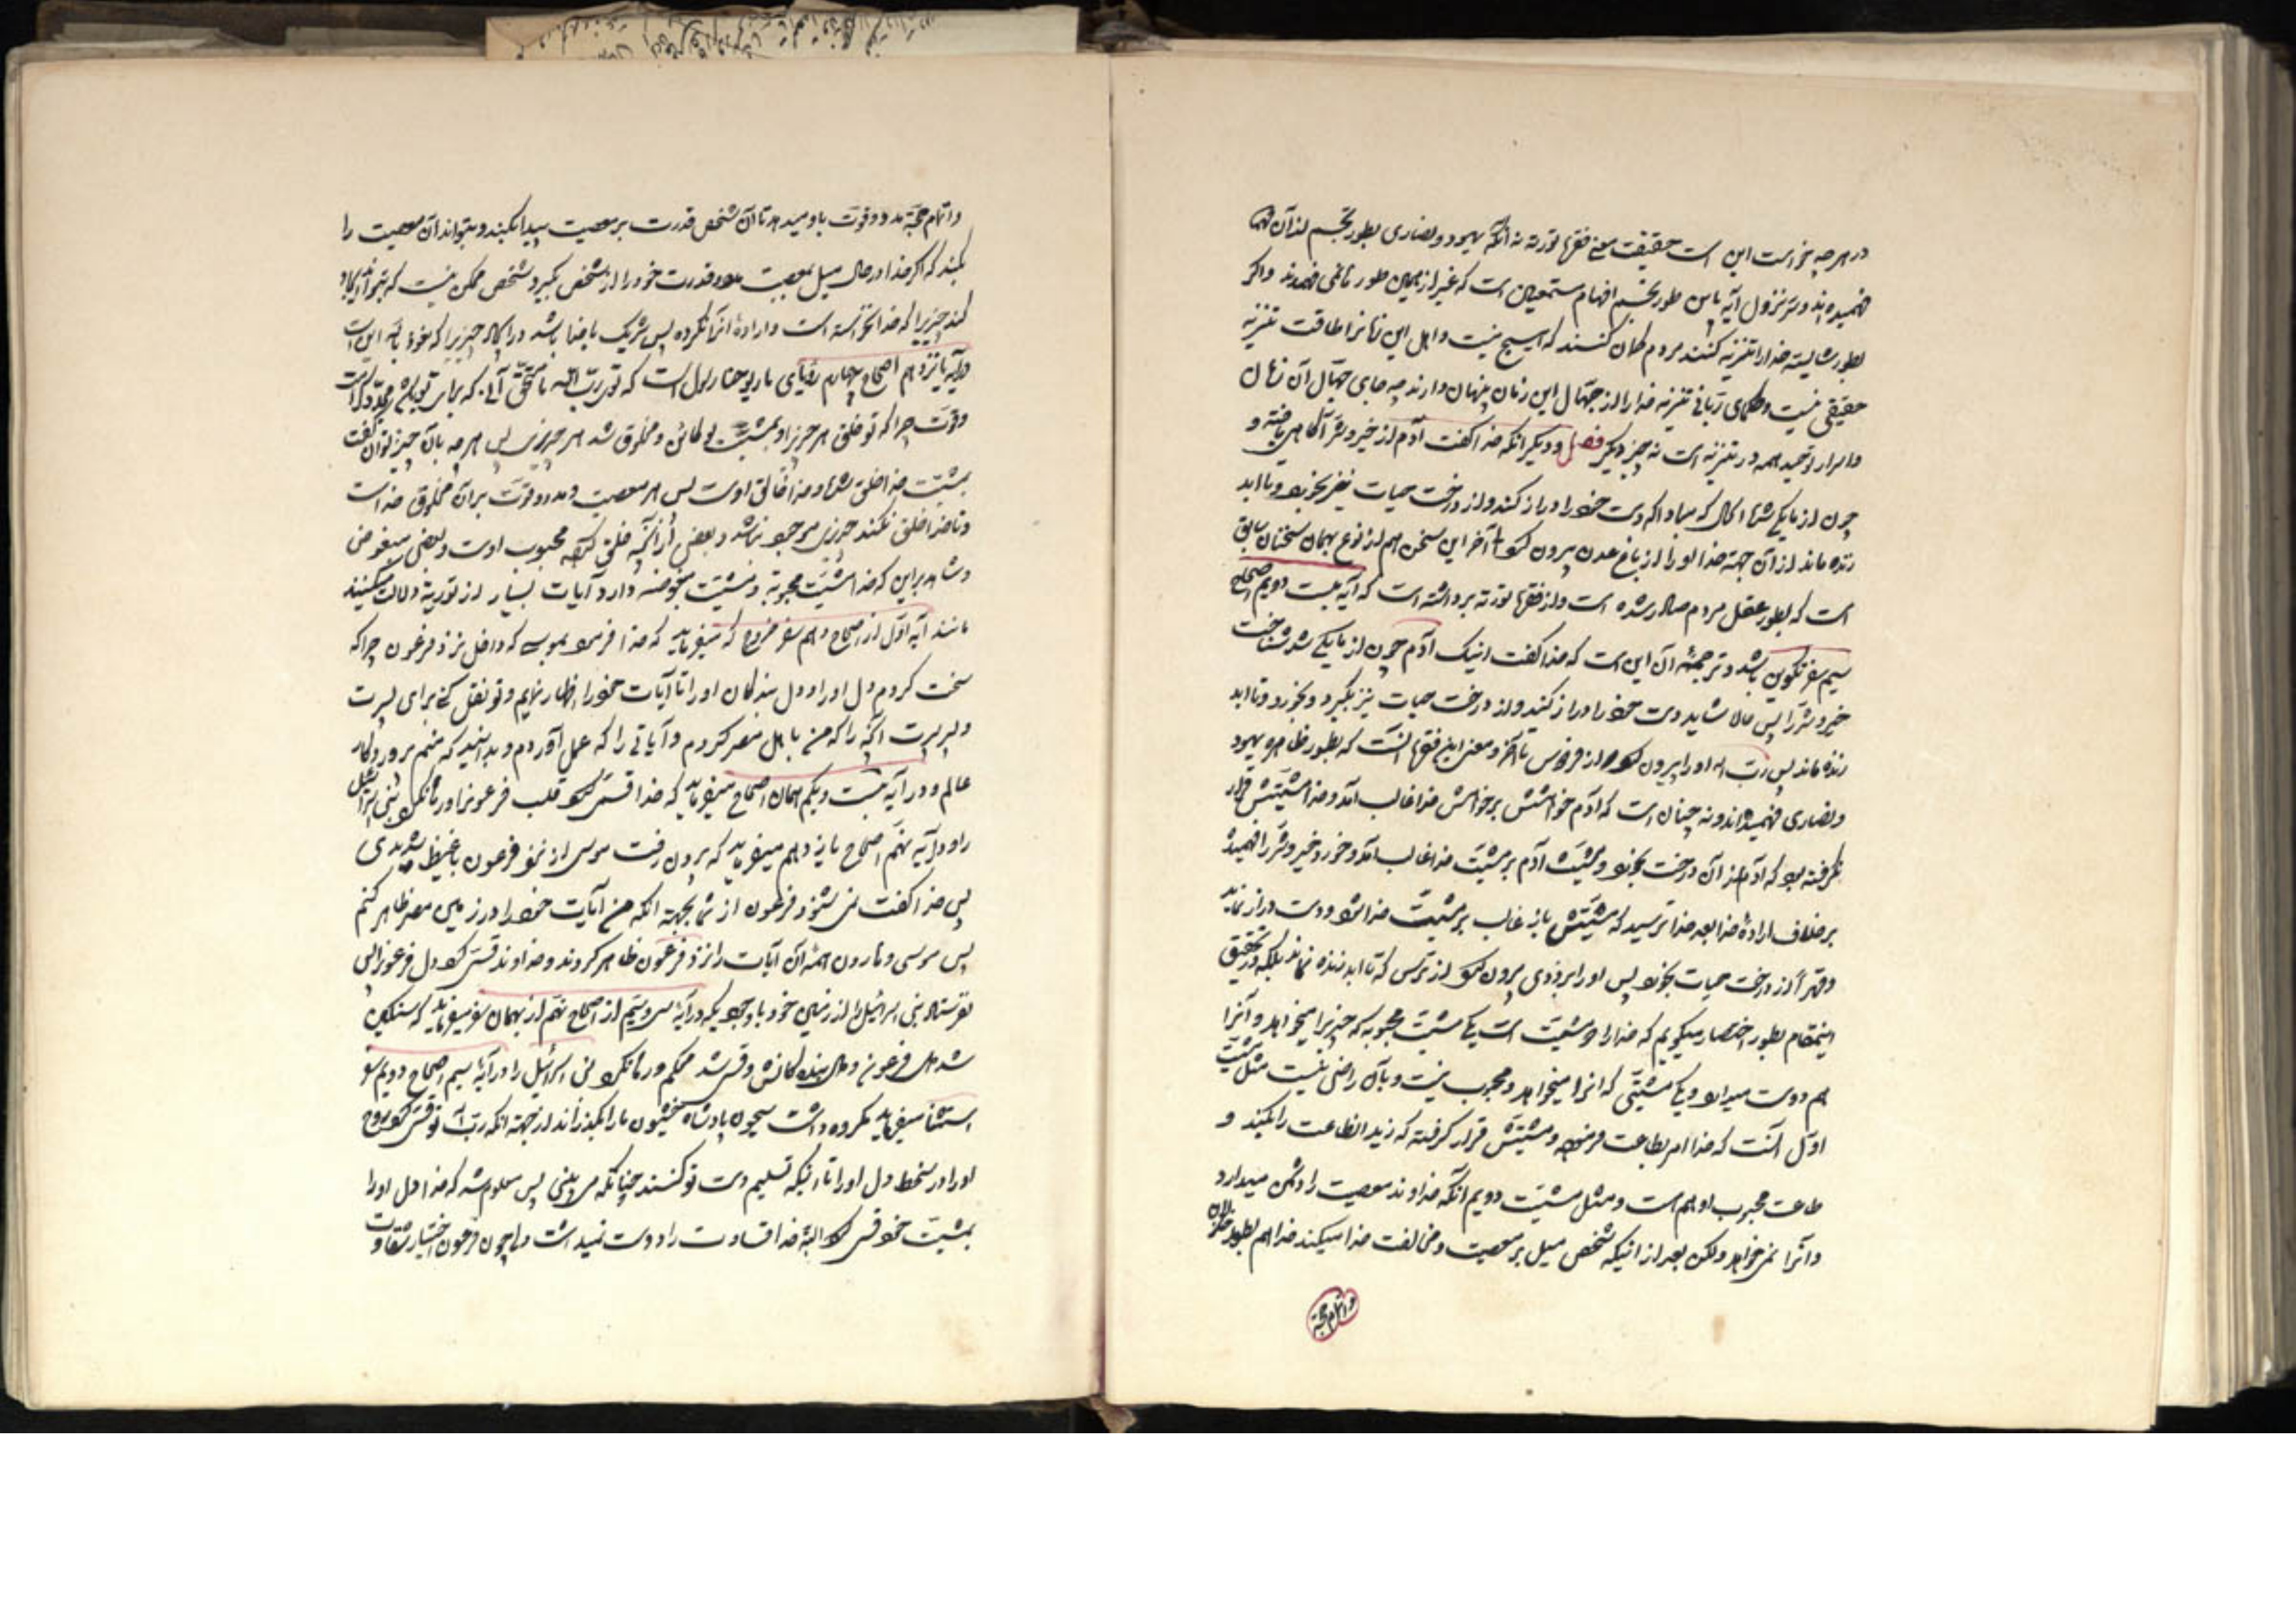 در هر چه خواست این است حقیقت معنی فقرهٔ توریة نه آنکه یهود و نصاری بطور تجسم از آن فقره
فهمیده‌اند و سرّ نزول آیه باین طور تجسم افهام مستمعین است که غیر از همین طور نمی فهمیدند و اگر
بطور شایسته خدا را تنزیه کنند مردم گمان کنند که هیچ نیست و اهل این زمانرا طاقت تنزیه
حقیقی نیست و حکمای ربّانی تنزیه خدا را از جهّال این زمان پنهان دارند چه جای جهّال آن زمان
و اسرار توحید همه در تنزیه است نه چیز دیگر فصل و دیگر آنکه خدا گفت آدم از خیر و شرّ آگاهی یافته و
چون از ما یکی شد الحال که مبادا که دست خود را دراز کند و از درخت حیات نیز بخورد و تا ابد
زنده ماند از آن جهة خدا او را از باغ عدن بیرون کرد تا آخر این سخن هم از نوع همان سخنان سابق
است که بطور عقل مردم صادر شده است و از فقرهٔ توریة برداشته است که آیه بیست دویم اصحاح
سیم سفر تکوین باشد و ترجمهٔ آن این است که خدا گفت اینک آدم چون از ما یکی شد شناخت
خیر و شرّ را پس حالا شاید دست خود را دراز کند و از درخت حیات نیز بگیرد و بخورد و تا ابد
زنده ماند پس ربّ اله او را بیرون کرد از فردوس تا آخر و معنی این فقره آنست که بطور ظاهر یهود
و نصاری فهمیده‌اند و نه چنان است که آدم خواهشش بر خواهش خدا غالب آمد و خدا مشیّتش قرار
نگرفته بود که آدم از آن درخت بخورد و مشیّت آدم بر مشیّت خدا غالب آمد و خورد و خیر و شرّ را فهمید
بر خلاف ارادهٔ خدا بعد خدا ترسید که مشیّتش باز غالب بر مشیّت خدا شود و دست دراز نماید
و قهراً از درخت حیات بخورد پس او را بزودی بیرون کرد از ترس که تا ابد زنده نماند بلکه در تحقیق
اینمقام بطور اختصار میگویم که خدا را دو مشیّت است یکی مشیّت محبوبه که چیزیرا میخواهد و آنرا
هم دوست میدارد و یکی مشیّتی که آنرا میخواهد و محبوب نیست و بآن راضی نیست مثل مشیّت
اوّل آنست که خدا امر بطاعت فرموده و مشیّتش قرار گرفته که زید آنطاعت را بکند و
طاعت محبوب او هم است و مثل مشیّت دویم آنکه خداوند معصیت را دشمن میدارد
و آنرا نمی‌خواهد ولکن بعد از اینکه شخص میل بر معصیت و مخالفت خدا میکند خدا هم بطور خذلان
و اتمام حجّة
و اتمام حجّة مدد و قوّت باو میدهد تا آن شخص قدرت بر معصیت پیدا بکند و بتواند آن معصیت را
بکند که اگر خدا در حال میل بمعصیت مدد و قدرت خود را از شخص بگیرد شخص ممکن نیست که بتواند ایجاد
کند چیزیرا که خدا نخواسته است و ارادهٔ آنرا نکرده پس شریک با خدا باشد در ایجاد چیزیرا که نعوذ بالله این است
در آیه یازدهم اصحاح چهارم رؤیای مار یوحنا رسول است که توئی ربّ اله ما مستحقّ آنی که برای تو باشد مجد و کرامت
و قوّت چرا که تو خلق هر چیزیرا و بمشیّت تو کائن و مخلوق شد هر چیزی پس هر چه بآن چیز توان گفت
بمشیّت خدا خلق شد و خدا خالق اوست پس هر معصیت و مدد و قوّت بر آن مخلوق خداست
و تا خدا خلق نکند چیزی موجود نباشد و بعضی از آنچه خلق کرده محبوب اوست و بعضی مبغوض
و شاهد بر این که خدا مشیّت محبوبة و مشیّت مبغوضه دارد آیات بسیار از توریة دلالت میکنند
مانند آیه اوّل از اصحاح دهم سفر خروج که میفرماید که خدا فرمود بموسی که داخل نزد فرعون چرا که
سخت کردم دل او را و دل بندگان او را تا آیات خود را اظهار نمایم و تو نقل کنی برای پسرت
و پسر پسرت آنچه را که من با اهل مصر کردم و آیاتی را که عمل آوردم و بدانید که منم پروردگار
عالم و در آیه بیست و یکم همان اصحاح میفرماید که خدا قسی کرد قلب فرعونرا و رها نکرد بنی اسرائیل
را و در آیه نهم اصحاح یازدهم میفرماید که بیرون رفت موسی از نزد فرعون با غیظ شدیدی
پس خدا گفت نمی شنود فرعون از شما بجهة آنکه من آیات خود را در زمین مصر ظاهر کنم
پس موسی و هارون همهٔ آن آیات را نزد فرعون ظاهر کردند و خداوند قسی کرد دل فرعونرا پس
نفرستاد بنی اسرائیل را از زمین خود با وجودیکه در آیهٔ سی و سیم از اصحاح نهم از همان سفر میفرماید که سنگین
شد دل فرعون و دل بنده‌گانش و قسی شد محکم و رها نکرد بنی اسرائیل را و در آیهٔ سیم اصحاح دویم سفر
استثنا میفرماید مکروه داشت سیحون پادشاه حشبون ما را بگذراند از جهة آنکه ربّ اله تو قسی کرد روح
او را و سخط دل او را تا اینکه تسلیم دست تو کنند چنانکه می بینی پس معلوم شد که خدا دل او را
بمشیّت خود قسی کرد البتّه خدا قساوت را دوست نمیداشت ولی چون فرعون اختیار شقاوت